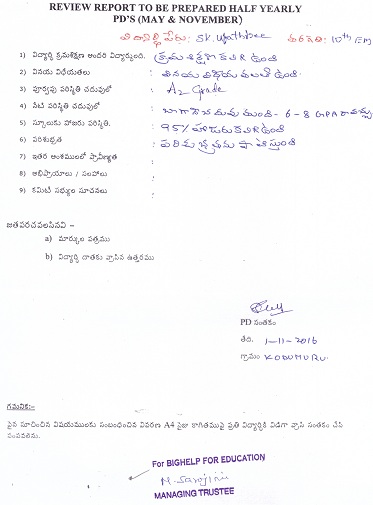 REVIEW REPORT TO BE PREPARED HALF YEARLY
PD'S (MAY & NOVEMBER)
విద్యార్థి పేరు: SK. తరగతి: 10th EM
1) విద్యార్థి క్రమశిక్షణ అందరి విద్యార్థులది. : క్రమశిక్షణ కలిగి ఉంది
2) వినయ విధేయతలు : వినయ విధేయతలతో ఉంది.
3) పూర్వపు పరిస్థితి చదువులో : A2 Grade
4) నేటి పరిస్థితి చదువులో : బాగా చదువుతుంది - 6-8 GPA రావచ్చు
5) స్కూలుకు హాజరు పరిస్థితి. : 95% హాజరు కలిగి ఉంది
6) పరిశుభ్రత : పరిశుభ్రముగా వస్తుంది
7) ఇతర అంశములలో ప్రావీణ్యత :
8) అభిప్రాయాలు / సలహాలు :
9) కమిటీ సభ్యుల సూచనలు :
జతపరచవలసినవి –
a) మార్కుల పత్రము
b) విద్యార్థి దాతకు వ్రాసిన ఉత్తరము
PD సంతకం
తేది. 1-11-2016
గ్రామం KODUMURU.
గమనిక:-
పైన సూచించిన విషయములకు సంబంధించిన వివరణ A4 సైజు కాగితముపై ప్రతి విద్యార్థికి విడిగా వ్రాసి సంతకం చేసి
పంపవలెను.
For BIGHELP FOR EDUCATION
M. Sarojini
MANAGING TRUSTEE